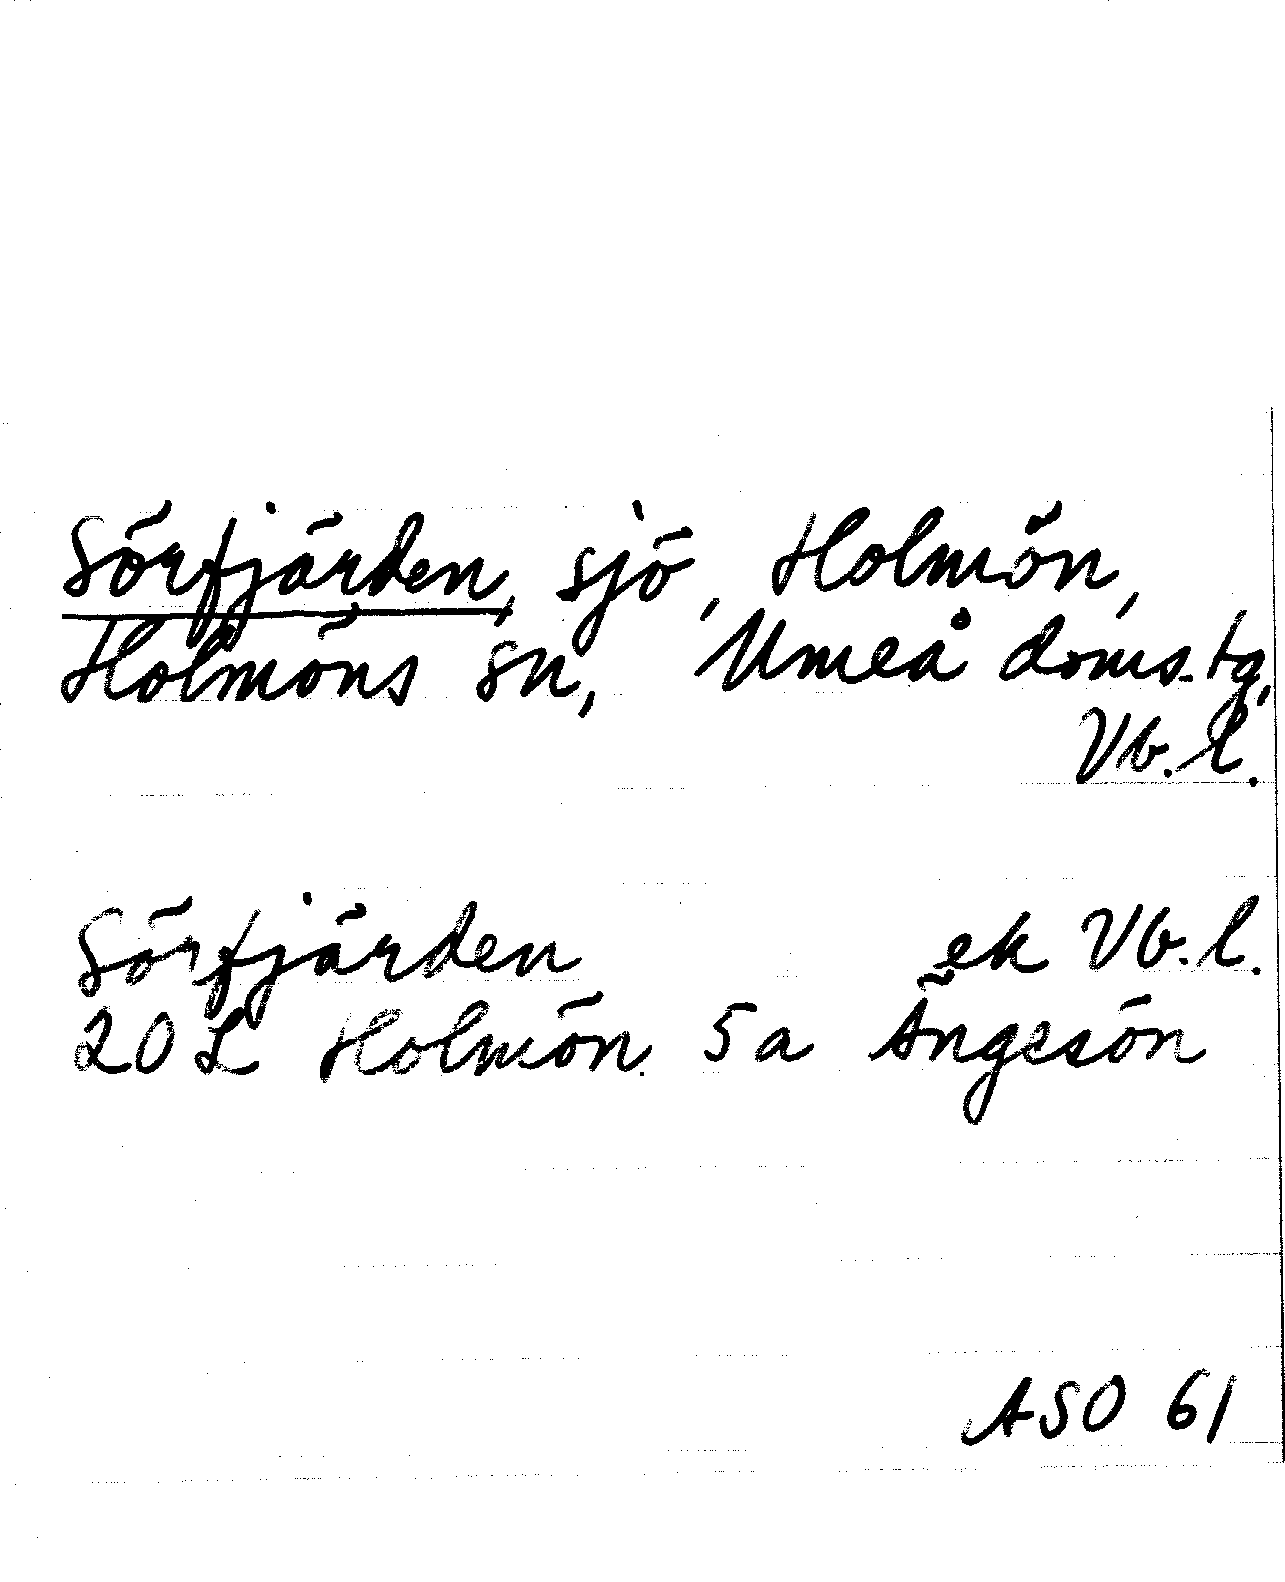 Sörfjärden, sjö, Holmön,
Holmöns sn, Umeå doms.tg,
Vb.l.
Sörfjärden ek Vb.l.
20 L Holmön 5a Ängesön
ASO 61